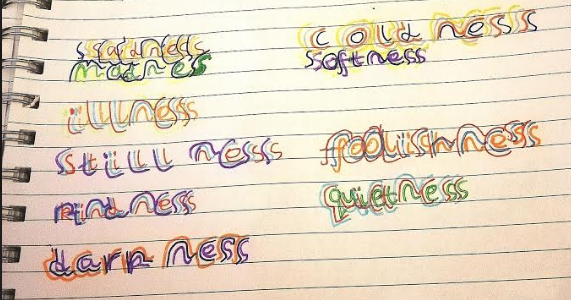 sadness
madness
illness
still ness
kindness
dark ness
cold ness
softness
foolishness
quietness